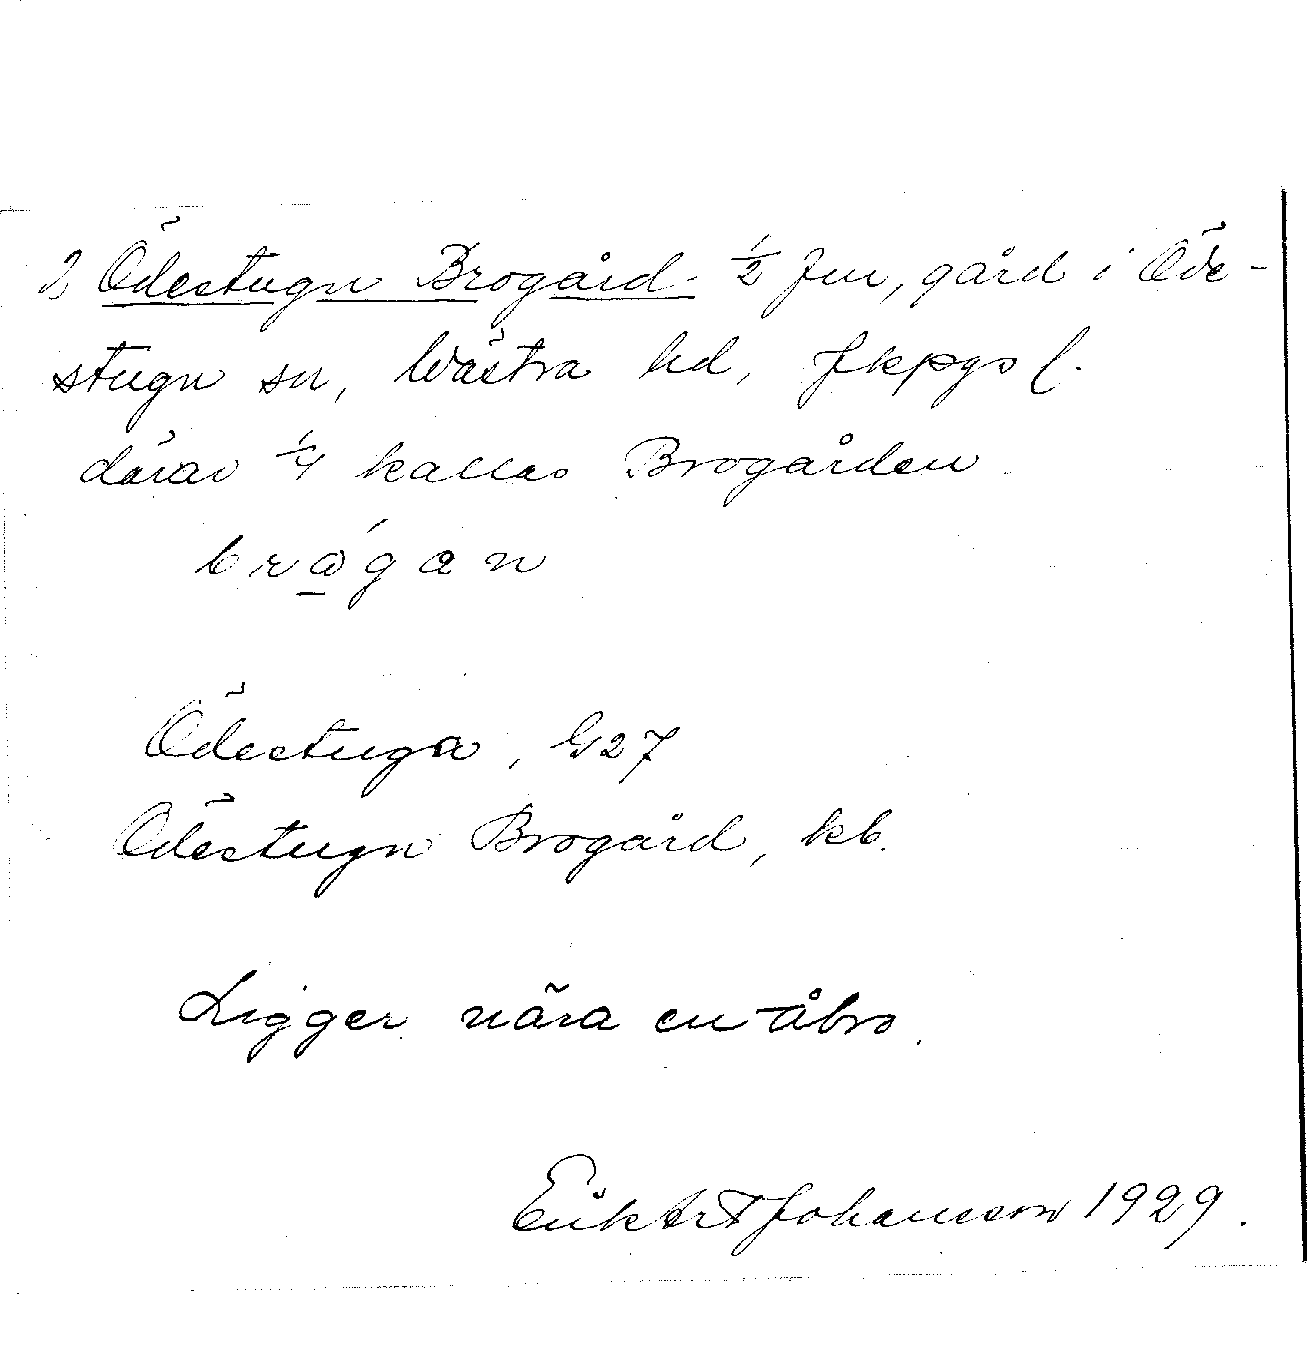 2, Ödestugn Brogård ½ fm, gård i Öde-
stugn sn, Wästra hd, Jkpgs l.
därav ¼ kallas Brogården
brågan
Ödestuga, G27
Ödestugn Brogård, kb.
Ligger nära en åbro.
Johansson 1929.